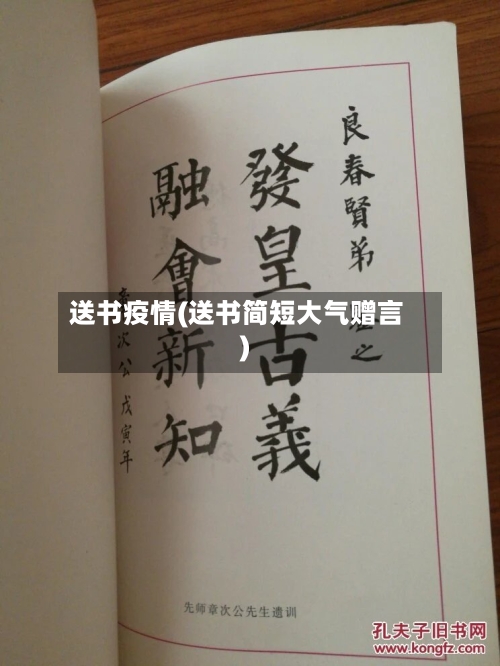 良春賢弟
之
發皇古義
融會新知
次公戊寅年
送书疫情(送书简短大气赠言
)
先师章次公先生遗训
孔夫子旧书网
www.kongfz.com